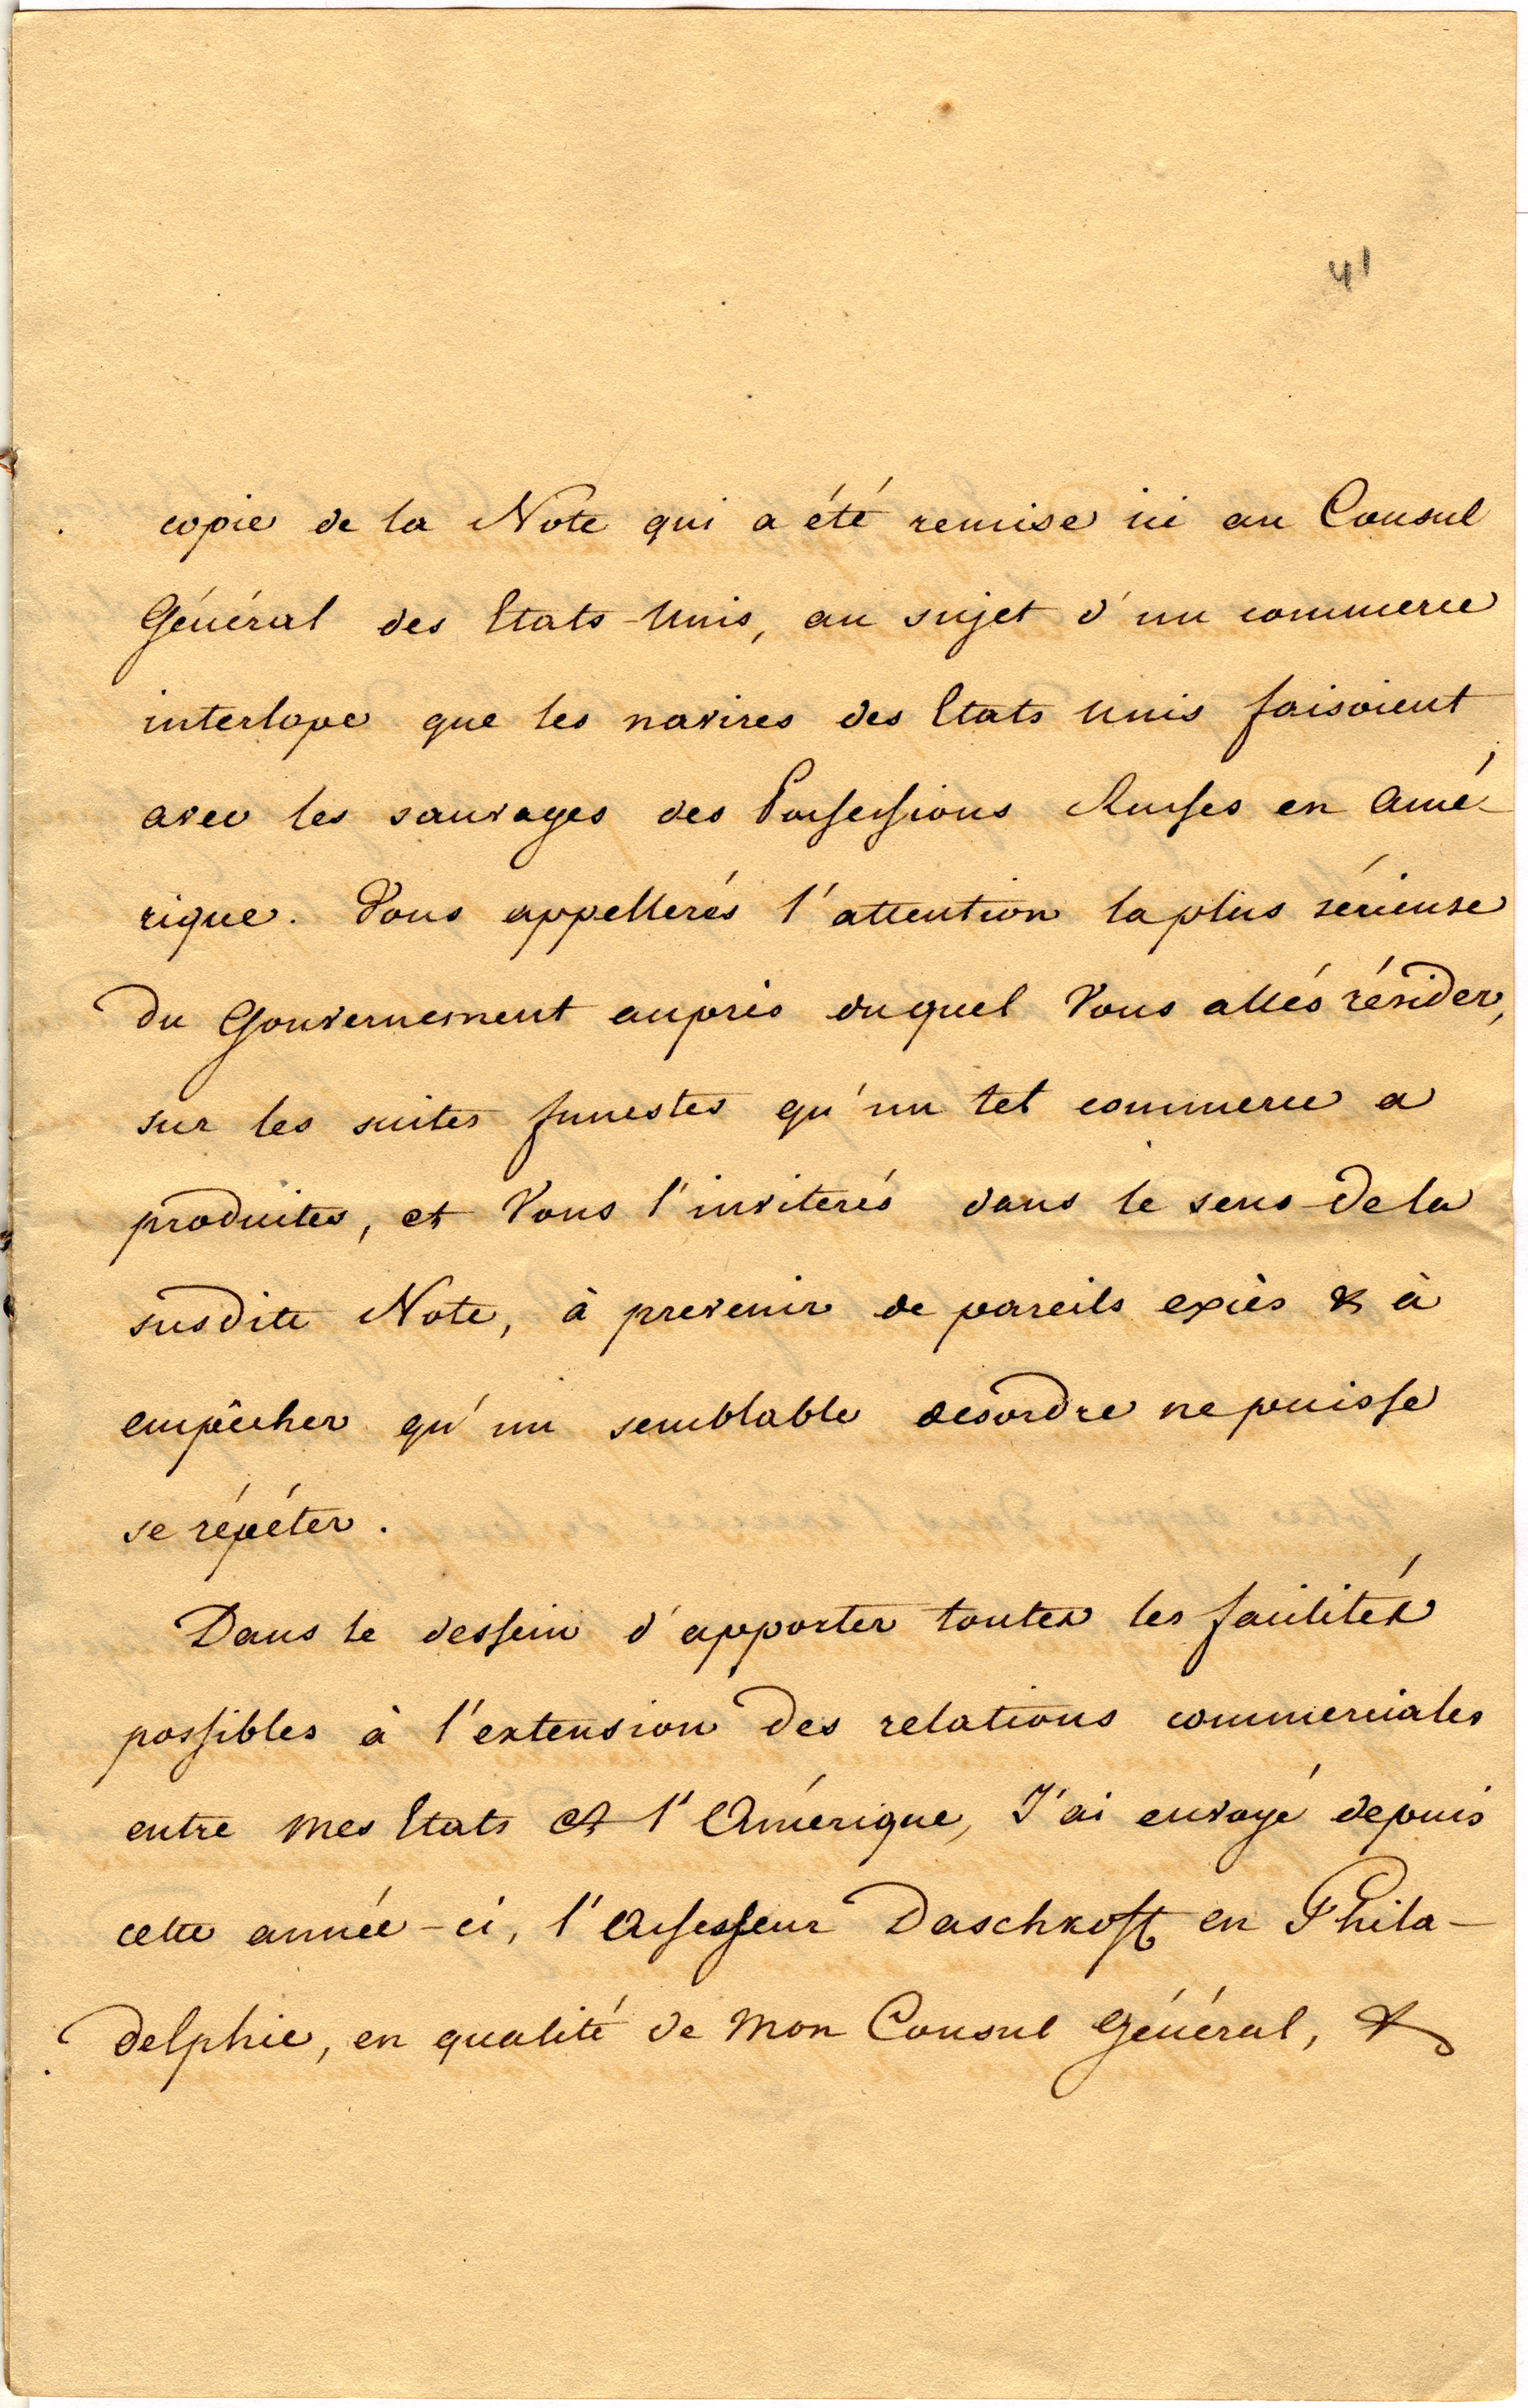 41
copie de la Note qui a été remise ici au Consul
Général des Etats-Unis, au sujet d'un commerce
interlope que les navires des Etats Unis faisoient
avec les sauvages des Possessions Russes en Amé-
rique. Vous appellerés l'attention la plus sérieuse
du Gouvernement auprès duquel Vous allés résider,
sur les suites funestes qu'un tel commerce a
produites, et Vous l'inviterés dans le sens de la
susdite Note, à prevenir de pareils excès & à
empêcher qu'un semblable desordre ne puisse
se répéter.
Dans le dessein d'apporter toutes les facilités
possibles à l'extension des relations commerciales
entre Mes Etats et l'Amérique, J'ai envoyé depuis
cette année-ci, l'Assesseur Daschkoff en Phila-
delphie, en qualité de Mon Consul Général, &